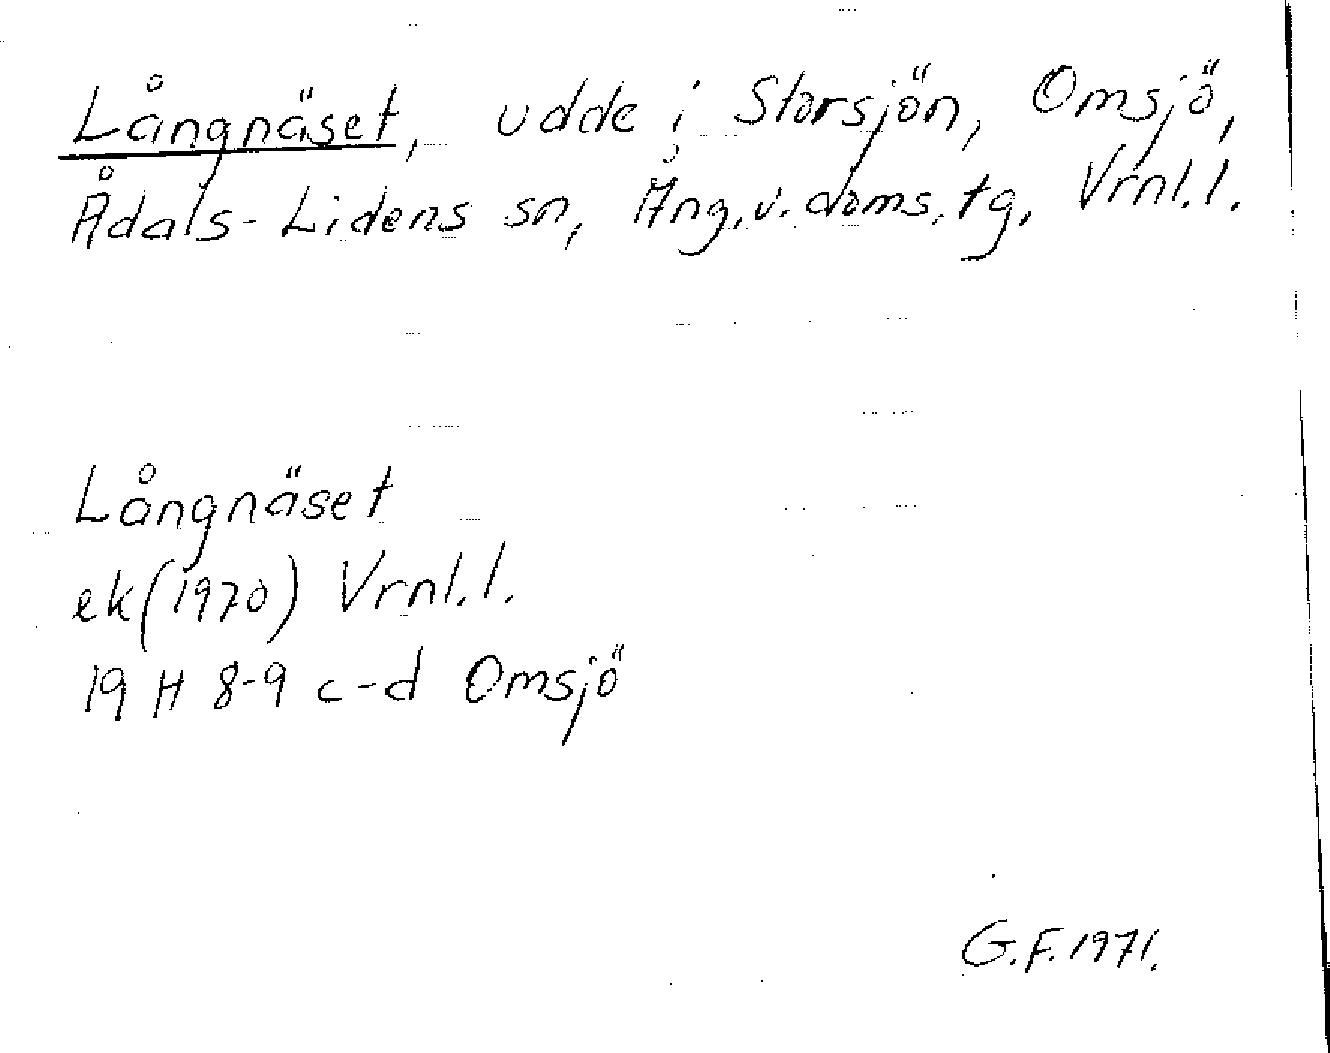 Långnäset, udde i Storsjön, Omsjö,
Ådals-Lidens sn, Ång.v.doms.tg, Vrnl.l.
Långnäset
ek(1970) Vrnl.l.
19 H 8-9 c-d Omsjö
G.F.1971.